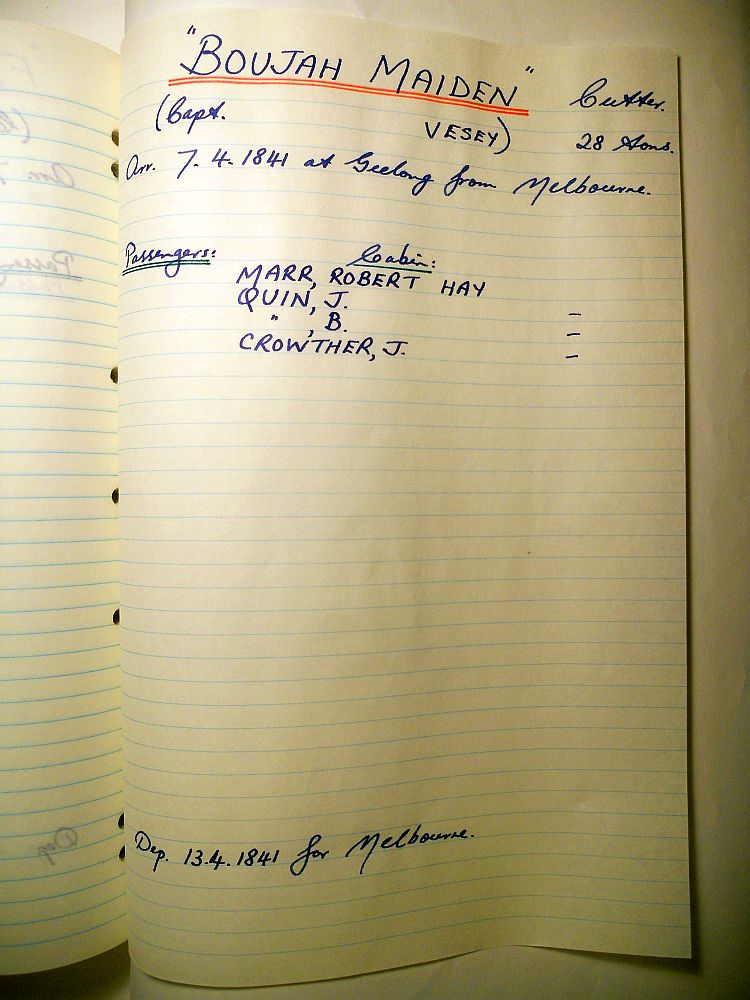 "BOUJAH MAIDEN" Cutter.
(Capt. VESEY) 28 tons.
Arr. 7.4.1841 at Geelong from Melbourne.
Passengers: Cabin:
MARR, ROBERT HAY
QUIN, J. –
" , B. –
CROWTHER, J. –
Dep. 13.4.1841 for Melbourne.